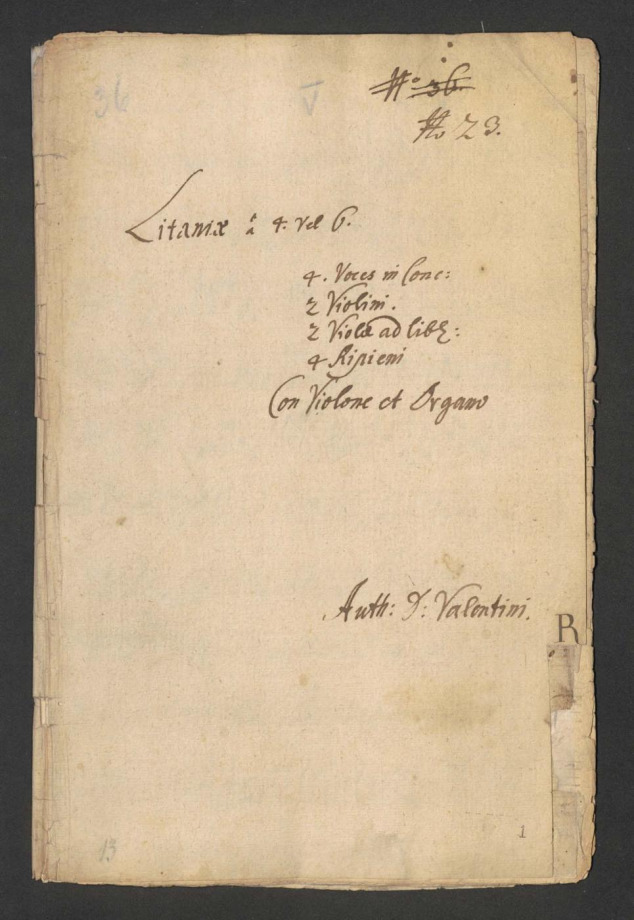 36 V No 36.
No 23.
Litaniæ à 4. vel 6.
4. Voces in Conc:
2 Violini.
2 Violæ ad lib:
4 Ripieni
Con Violone et Organo
Auth: D: Valentini.
R
1
13